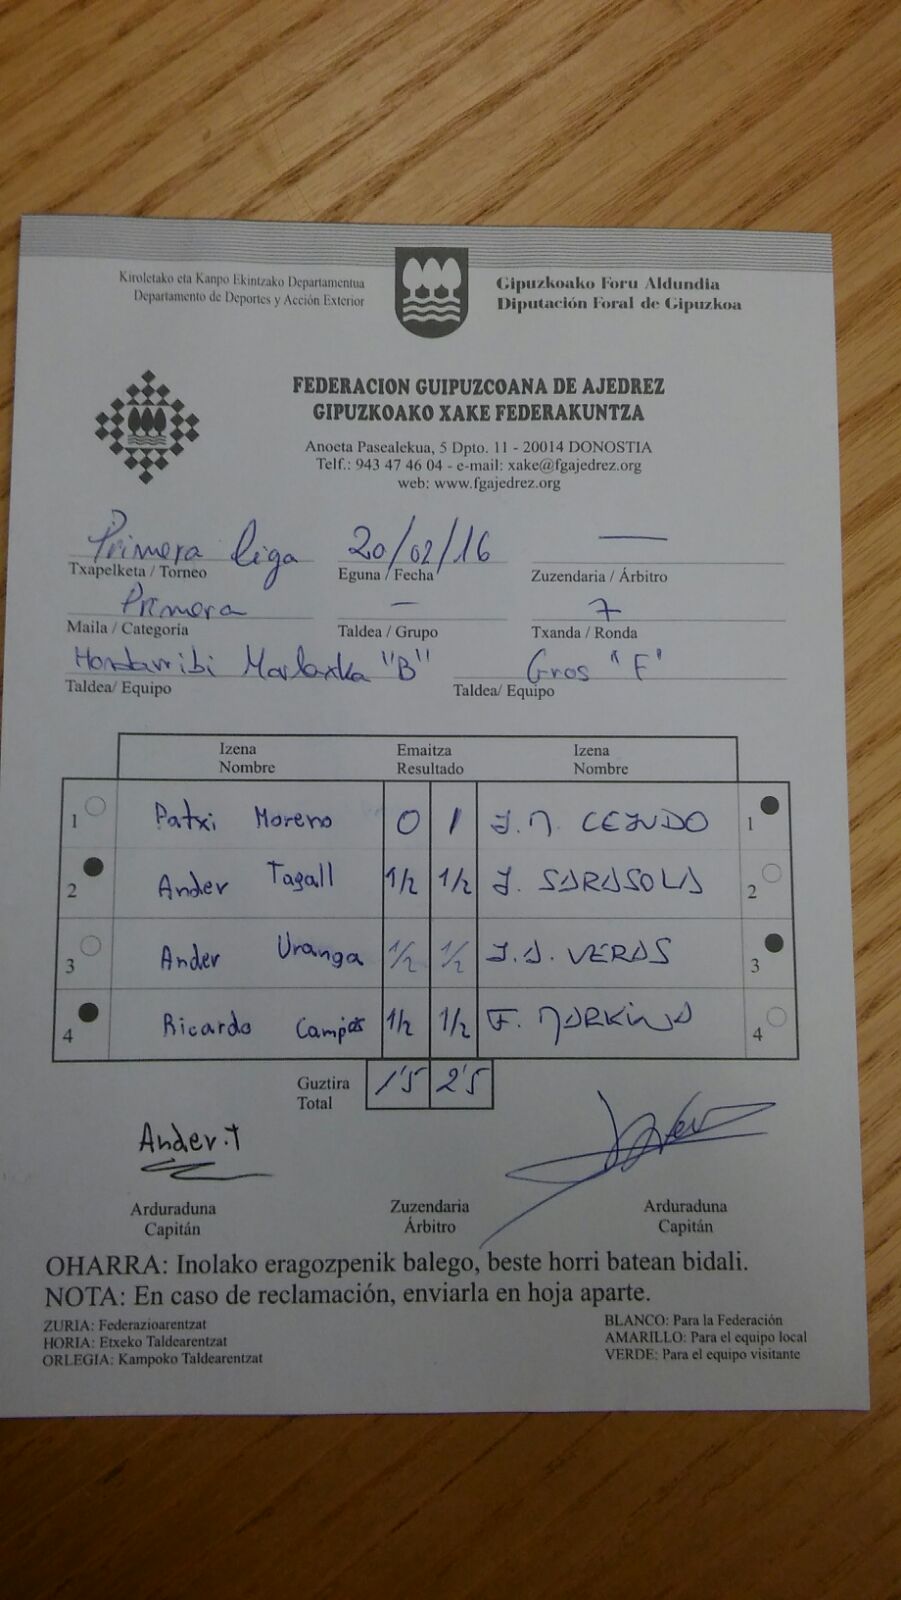 Kiroletako eta Kanpo Ekintzako Departamentua
Departamento de Deportes y Acción Exterior
Gipuzkoako Foru Aldundia
Diputación Foral de Gipuzkoa
FEDERACION GUIPUZCOANA DE AJEDREZ
GIPUZKOAKO XAKE FEDERAKUNTZA
Anoeta Pasealekua, 5 Dpto. 11 - 20014 DONOSTIA
Telf.: 943 47 46 04 - e-mail: xake@fgajedrez.org
web: www.fgajedrez.org
Primera liga 20/02/16 —
Txapelketa / Torneo Eguna / Fecha Zuzendaria / Árbitro
Primera — 7
Maila / Categoria Taldea / Grupo Txanda / Ronda
Hondarribi "B" Gros "F"
Taldea/ Equipo Taldea/ Equipo
Izena Emaitza Izena
Nombre Resultado Nombre
1 Patxi Moreno 0 1 J.M. CEJUDO 1
2 Ander Tagall 1/2 1/2 J. SARASOLA 2
3 Ander Uranga 1/2 1/2 J.A. VERAS 3
4 Ricardo Campos 1/2 1/2 F. MARKINA 4
Guztira 1'5 2'5
Total
Ander.T
Arduraduna Zuzendaria Arduraduna
Capitán Árbitro Capitán
OHARRA: Inolako eragozpenik balego, beste horri batean bidali.
NOTA: En caso de reclamación, enviarla en hoja aparte.
ZURIA: Federazioarentzat
HORIA: Etxeko Taldearentzat
ORLEGIA: Kampoko Taldearentzat
BLANCO: Para la Federación
AMARILLO: Para el equipo local
VERDE: Para el equipo visitante